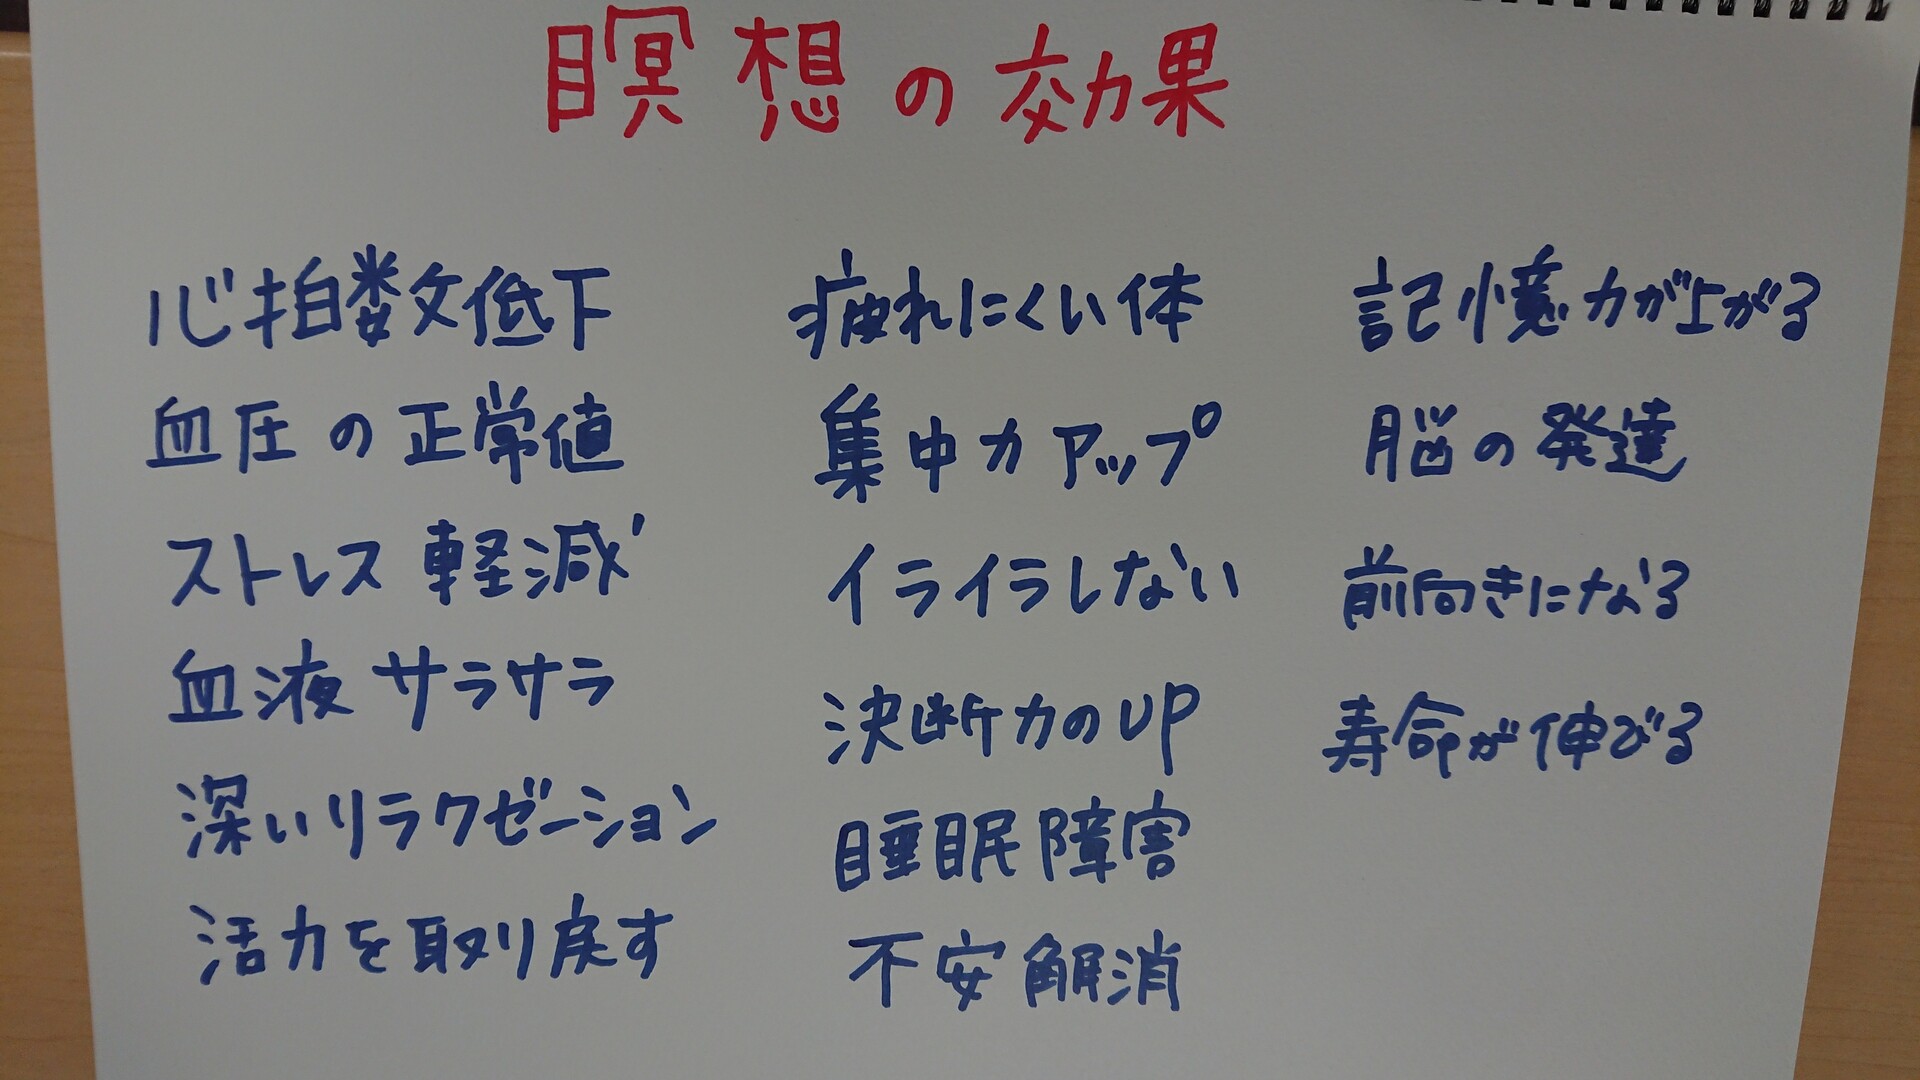 瞑想の効果
心拍数低下
血圧の正常値
ストレス軽減
血液サラサラ
深いリラクゼーション
活力を取り戻す
疲れにくい体
集中力アップ
イライラしない
決断力のUP
睡眠障害
不安解消
記憶力が上がる
脳の発達
前向きになる
寿命が伸びる